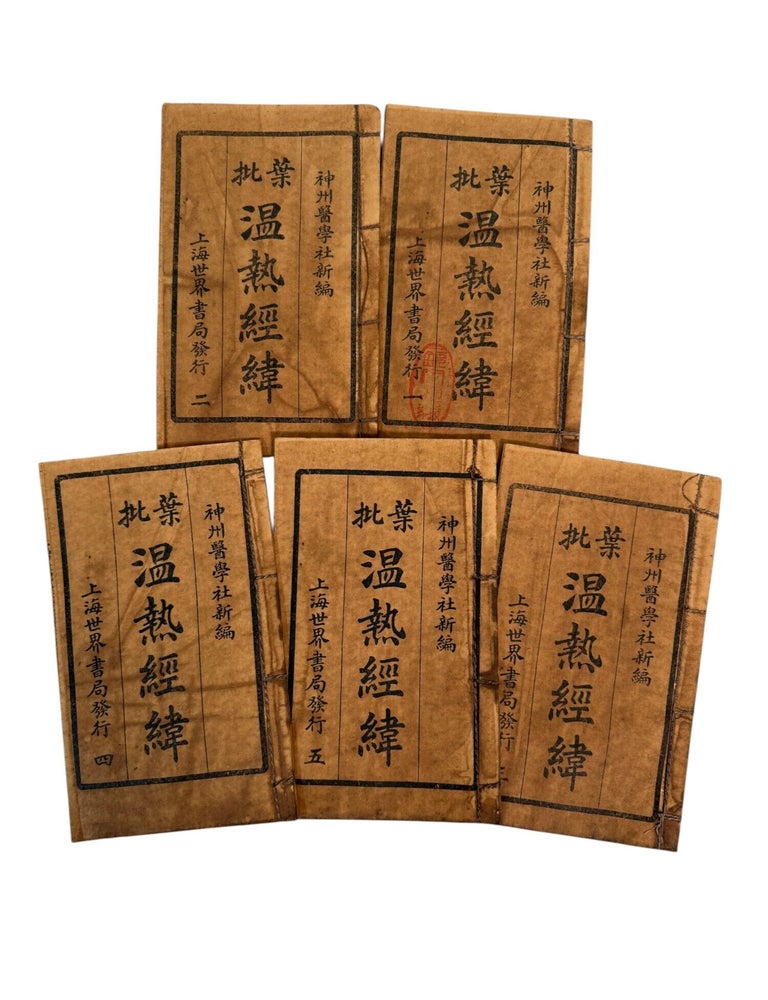 神州醫學社新編
葉批
温熱經緯
上海世界書局發行 一
神州醫學社新編
葉批
温熱經緯
上海世界書局發行 二
神州醫學社新編
葉批
温熱經緯
上海世界書局發行
神州醫學社新編
葉批
温熱經緯
上海世界書局發行 五
神州醫學社新編
葉批
温熱經緯
上海世界書局發行 四